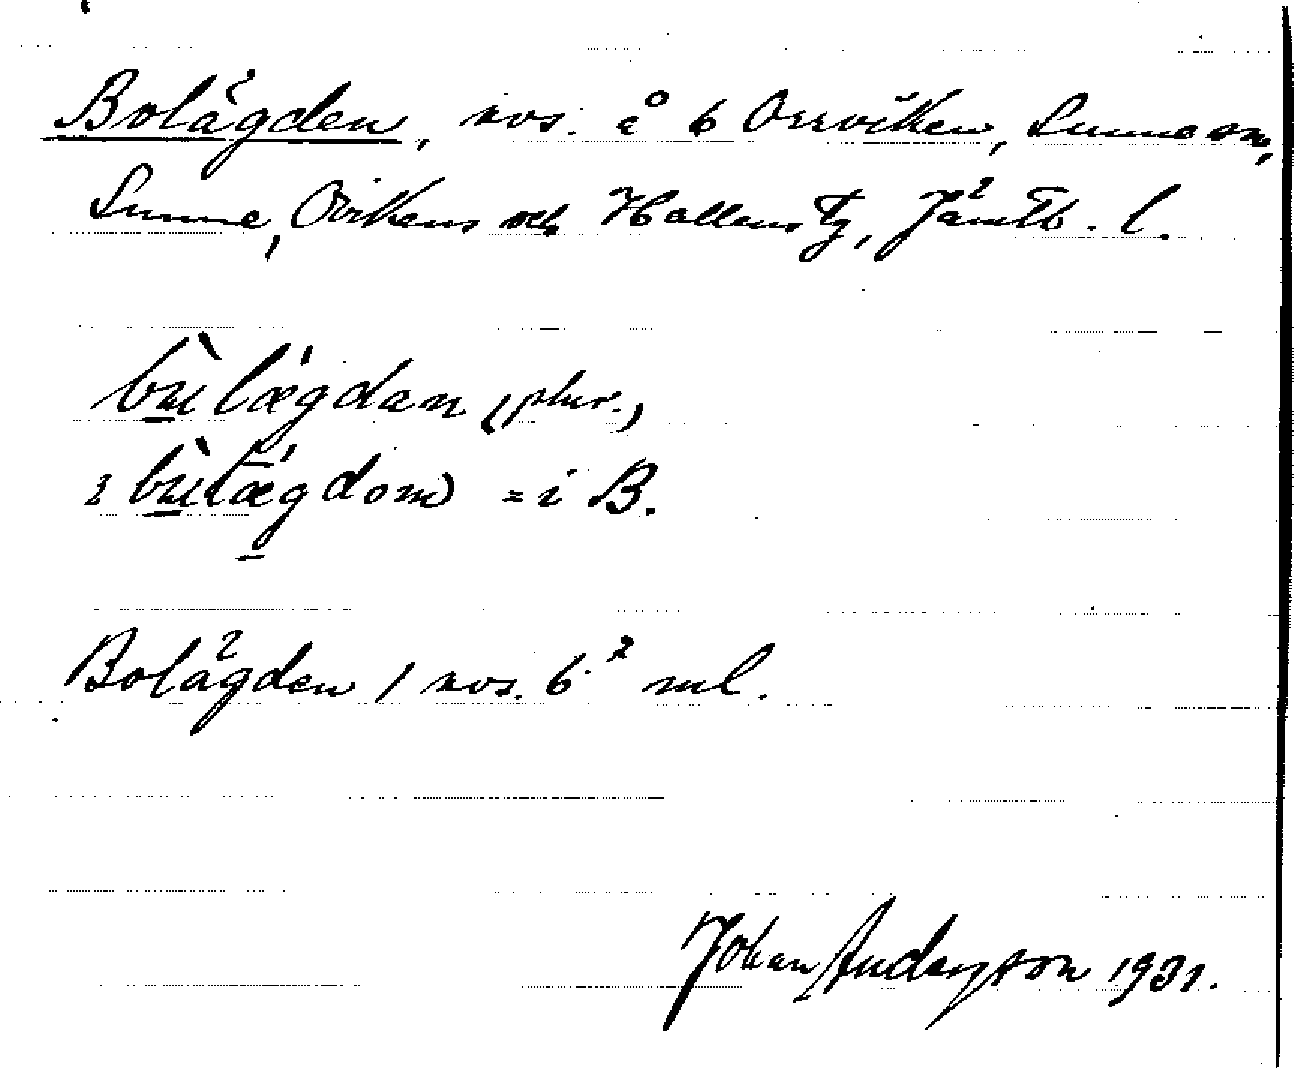 Bolägden, ros. å 6 Orrviken, Sunne sn,
Sunne, Ovikens och Hallens tg, Jämtl. l.
bu̱lægdan (plur.)
i bu̱lægdom = i B.
Bolägden / ros. 6² ml.
Johan Anderzson 1931.